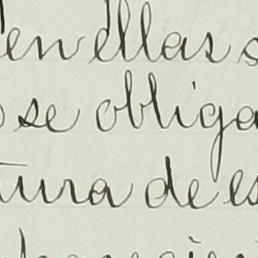 en ellas
se obliga
tura de es